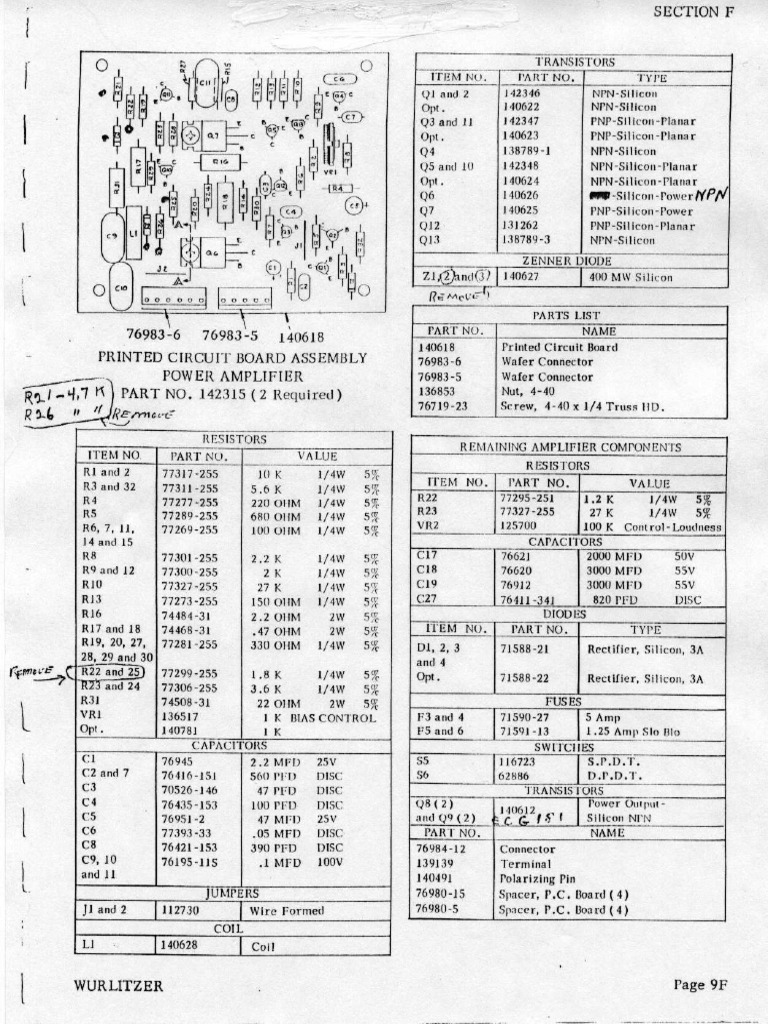 SECTION F
76983-6 76983-5 140618
PRINTED CIRCUIT BOARD ASSEMBLY
POWER AMPLIFIER
PART NO. 142315 (2 Required)
R21-4,7 K
R26 " " Remove
RESISTORS
ITEM NO. PART NO. VALUE
R1 and 2 77317-255 10 K 1/4W 5%
R3 and 32 77311-255 5.6 K 1/4W 5%
R4 77277-255 220 OHM 1/4W 5%
R5 77289-255 680 OHM 1/4W 5%
R6, 7, 11, 77269-255 100 OHM 1/4W 5%
14 and 15
R8 77301-255 2.2 K 1/4W 5%
R9 and 12 77300-255 2 K 1/4W 5%
R10 77327-255 27 K 1/4W 5%
R13 77273-255 150 OHM 1/4W 5%
R16 74484-31 2.2 OHM 2W 5%
R17 and 18 74468-31 .47 OHM 2W 5%
R19, 20, 27, 77281-255 330 OHM 1/4W 5%
28, 29 and 30
Remove R22 and 25 77299-255 1.8 K 1/4W 5%
R23 and 24 77306-255 3.6 K 1/4W 5%
R31 74508-31 22 OHM 2W 5%
VR1 136517 1 K BIAS CONTROL
Opt. 140781 1 K
CAPACITORS
C1 76945 2.2 MFD 25V
C2 and 7 76416-151 560 PFD DISC
C3 70526-146 47 PFD DISC
C4 76435-153 100 PFD DISC
C5 76951-2 47 MFD 25V
C6 77393-33 .05 MFD DISC
C8 76421-153 390 PFD DISC
C9, 10 76195-11S .1 MFD 100V
and 11
JUMPERS
J1 and 2 112730 Wire Formed
COIL
L1 140628 Coil
TRANSISTORS
ITEM NO. PART NO. TYPE
Q1 and 2 142346 NPN-Silicon
Opt. 140622 NPN-Silicon
Q3 and 11 142347 PNP-Silicon-Planar
Opt. 140623 PNP-Silicon-Planar
Q4 138789-1 NPN-Silicon
Q5 and 10 142348 NPN-Silicon-Planar
Opt. 140624 NPN-Silicon-Planar
Q6 140626 -Silicon-Power NPN
Q7 140625 PNP-Silicon-Power
Q12 131262 PNP-Silicon-Planar
Q13 138789-3 NPN-Silicon
ZENNER DIODE
Z1, 2 and 3 140627 400 MW Silicon
Remove
PARTS LIST
PART NO. NAME
140618 Printed Circuit Board
76983-6 Wafer Connector
76983-5 Wafer Connector
136853 Nut, 4-40
76719-23 Screw, 4-40 x 1/4 Truss HD.
REMAINING AMPLIFIER COMPONENTS
RESISTORS
ITEM NO. PART NO. VALUE
R22 77295-251 1.2 K 1/4W 5%
R23 77327-255 27 K 1/4W 5%
VR2 125700 100 K Control-Loudness
CAPACITORS
C17 76621 2000 MFD 50V
C18 76620 3000 MFD 55V
C19 76912 3000 MFD 55V
C27 76411-341 820 PFD DISC
DIODES
ITEM NO. PART NO. TYPE
D1, 2, 3 71588-21 Rectifier, Silicon, 3A
and 4
Opt. 71588-22 Rectifier, Silicon, 3A
FUSES
F3 and 4 71590-27 5 Amp
F5 and 6 71591-13 1.25 Amp Slo Blo
SWITCHES
S5 116723 S.P.D.T.
S6 62886 D.P.D.T.
TRANSISTORS
Q8 (2) 140612 Power Output-
and Q9 (2) ECG 151 Silicon NPN
PART NO. NAME
76984-12 Connector
139139 Terminal
140491 Polarizing Pin
76980-15 Spacer, P.C. Board (4)
76980-5 Spacer, P.C. Board (4)
WURLITZER
Page 9F